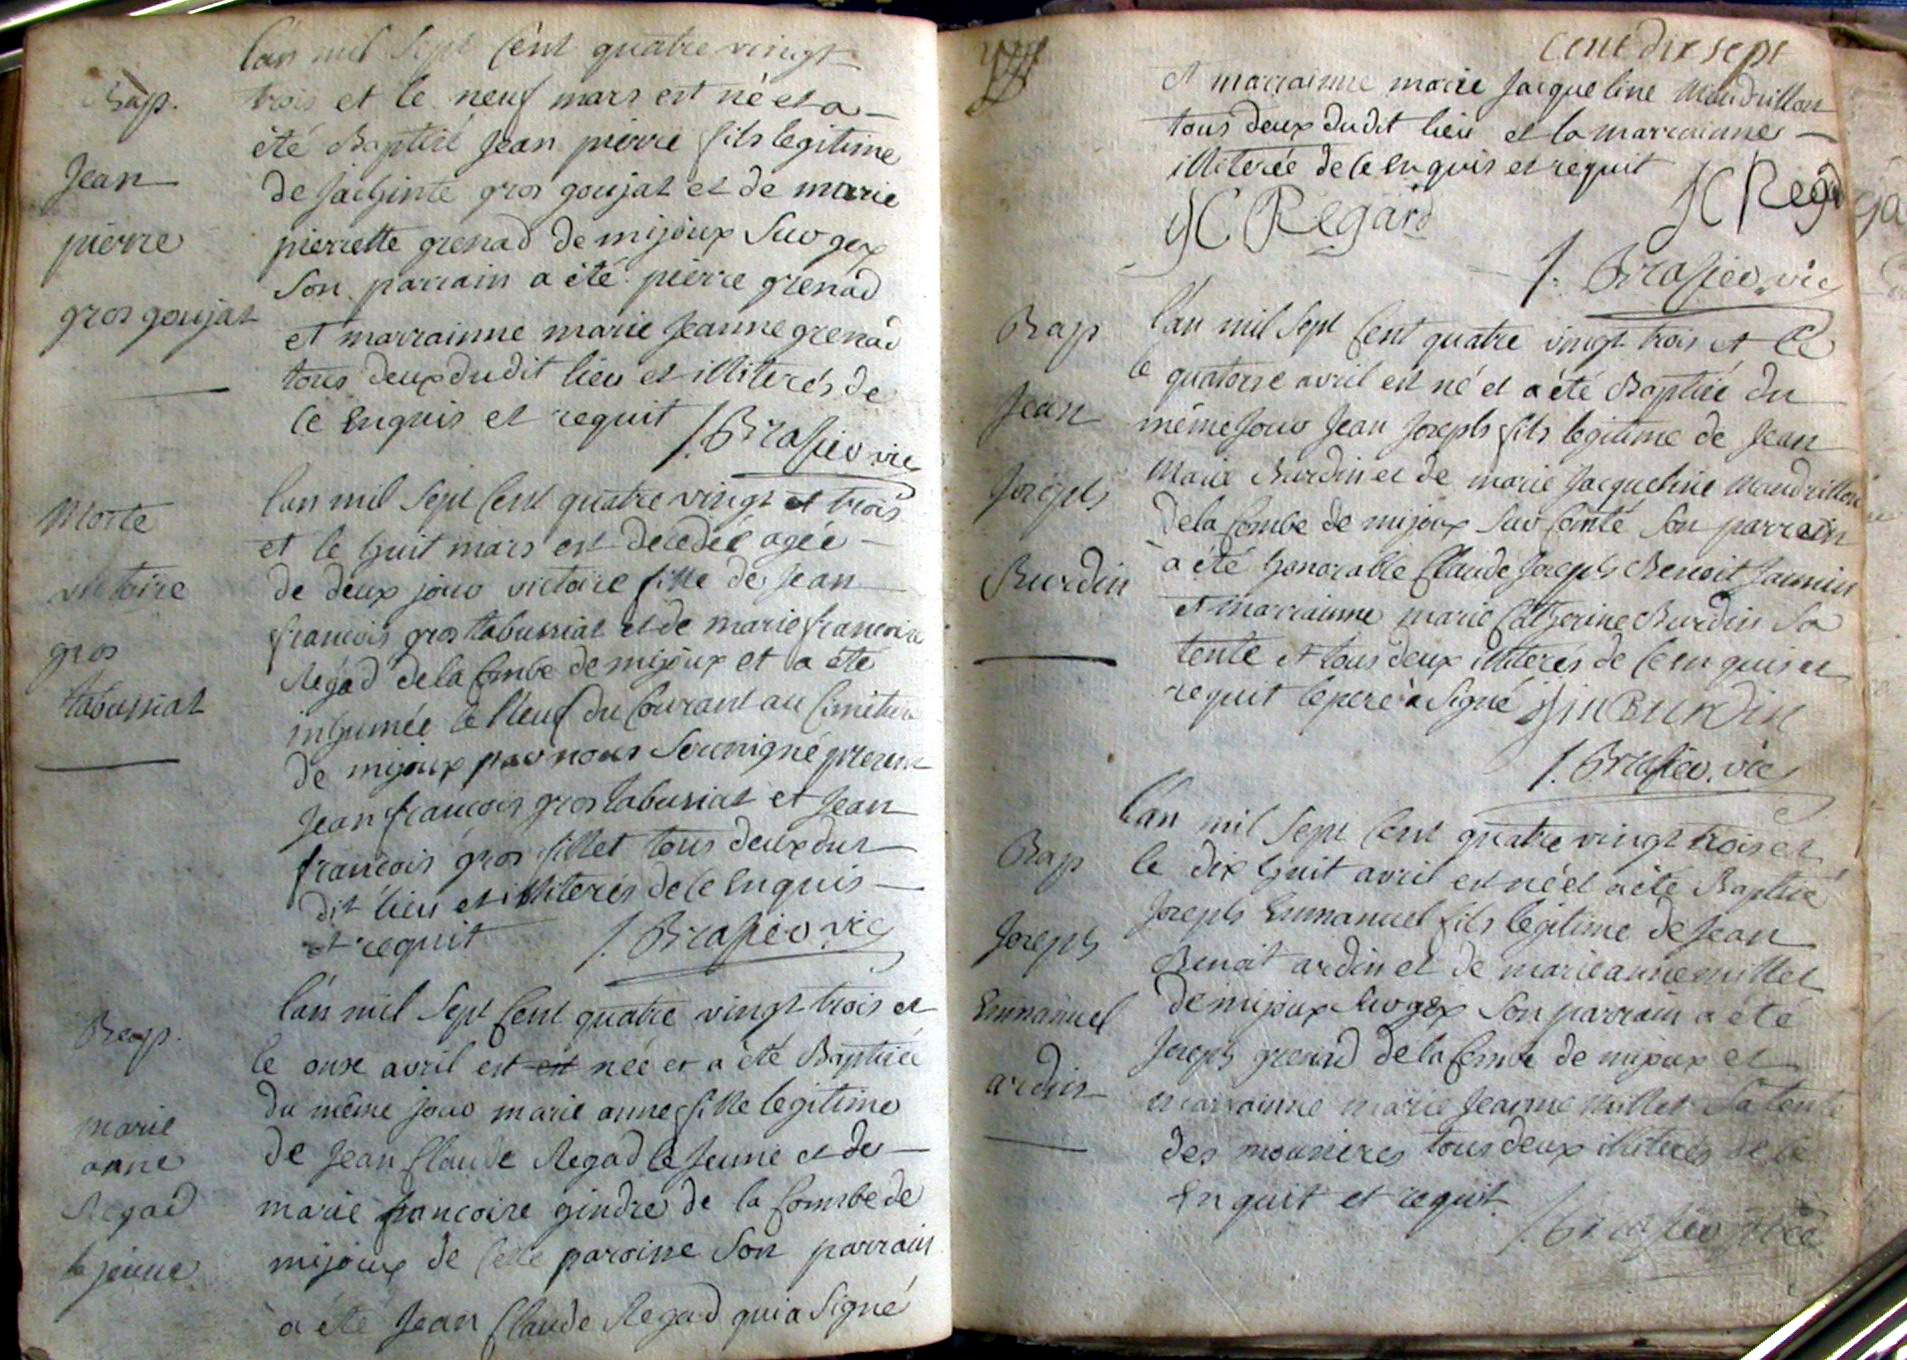 Bap.
Jean
pierre
gros goujat
l'an mil Sept Cent quatre vingt
trois et le neuf mars est né et a
été Baptisé Jean pierre fils legitime
de Jachinte gros goujat et de marie
pierrette grenad de mijoux Sur gex
Son parrain a été pierre grenad
et marrainne marie Jeanne grenad
tous deux dudit lieu et illiterés de
ce Enquis et requit J. Brasier vic
Morte
victoire
gros
tabussiat
l'an mil Sept Cent quatre vingt et trois
et le huit mars est decedée agée
de deux jour victoire fille de Jean
francois gros tabussiat et de marie francoise
Regad de la Combe de mijoux et a été
inhumée le Neuf du Courant au Cimitiere
de mijoux par nous Soussigné present
Jean francois gros tabusiat et Jean
francois gros fillet tous deux dus
dit lieu et illiterés de ce Enquis
et requit J. Brasier vic
Bap.
marie
anne
Regad
le jeune
l'an mil Sept Cent quatre vingt trois et
le onze avril est est née et a été Baptisée
du même jour marie anne fille legitime
de Jean Claude Regad le Jeune et de
marie francoise gindre de la Combe de
mijoux de cette paroisse Son parrain
a été Jean Claude Regad qui a Signé
Cent dix sept
et marrainne marie Jacqueline Mandrillon
tous deux dudit lieu et la marrainne
illiterée de ce Enquis et requit
JC Regard JC Regad
J. Brasier vic
Bap
Jean
Joseph
Burdin
l'an mil Sept Cent quatre vingt trois et le
le quatorse avril est né et a été Baptisé du
même Jour Jean Joseph fils legitime de Jean
Marie Burdin et de marie Jacqueline Mandrillon
de la Combe de mijoux Sur Comté Son parrain
a été honorable Claude Joseph Benoit Jannin
et marrainne marie Catherine Burdin Sa
tente et tous deux illiterés de ce en quis et
requit le pere a Signé JM Burdin
J. Brasier. vic
Bap
Joseph
Emmanuel
ardin
l'an mil Sept Cent quatre vingt trois et
le dix huit avril est né et a été Baptisé
Joseph Emmanuel fils legitime de Jean
Benoit ardin et de marie anne millet
de mijoux Sur gex Son parrain a été
Joseph grenad de la Combe de mijoux et
marrainne marie Jeanne millet Sa tente
des mounieres tous deux illiterés de ce
En quit et requit
J. Brasier vic